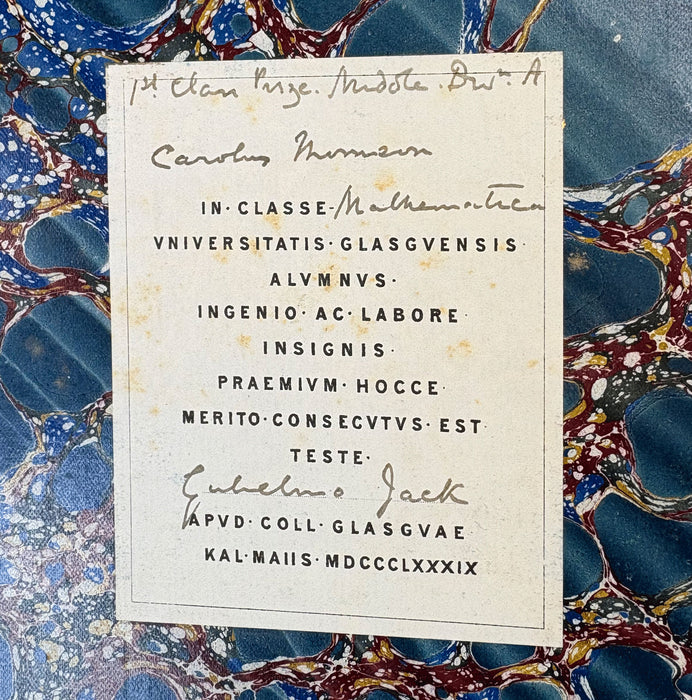 1st. Class Prize. Middle. Divn. A
Carolus Thomson
IN· CLASSE- Mathematica
VNIVERSITATIS· GLASGVENSIS·
ALVMNVS·
INGENIO· AC· LABORE·
INSIGNIS·
PRAEMIVM· HOCCE·
MERITO·CONSECVTVS· EST·
TESTE·
Gulielmo Jack
APVD· COLL· GLASGVAE·
KAL·MAIIS·MDCCCLXXXIX